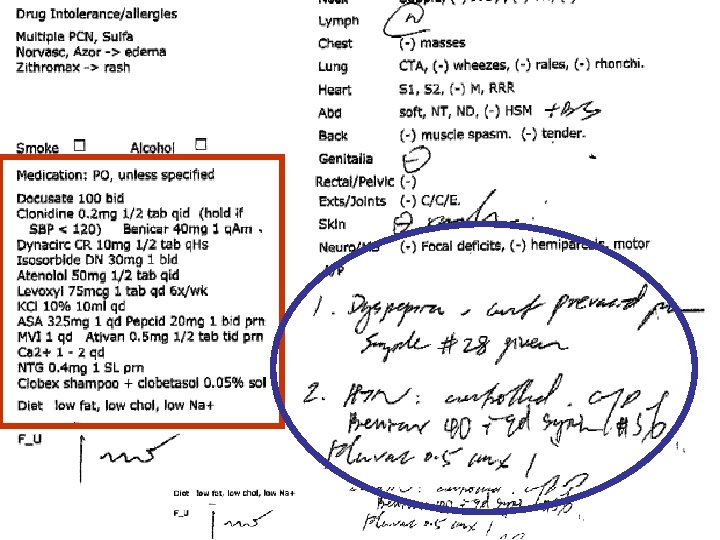 Drug Intolerance/allergies
Multiple PCN, Sulfa
Norvasc, Azor -> edema
Zithromax -> rash
Smoke ☐ Alcohol ☐
Medication: PO, unless specified
Docusate 100 bid
Clonidine 0.2mg 1/2 tab qid (hold if
SBP < 120) Benicar 40mg 1 qAm
Dynacirc CR 10mg 1/2 tab qHs
Isosorbide DN 30mg 1 bid
Atenolol 50mg 1/2 tab qid
Levoxyl 75mcg 1 tab qd 6x/wk
KCl 10% 10ml qd
ASA 325mg 1 qd Pepcid 20mg 1 bid prn
MVI 1 qd Ativan 0.5mg 1/2 tab tid prn
Ca2+ 1 - 2 qd
NTG 0.4mg 1 SL prn
Clobex shampoo + clobetasol 0.05% sol
Diet low fat, low chol, low Na+
F_U
Diet low fat, low chol, low Na+
F_U
Lymph
Chest (-) masses
Lung CTA, (-) wheezes, (-) rales, (-) rhonchi.
Heart S1, S2, (-) M, RRR
Abd soft, NT, ND, (-) HSM + BS
Back (-) muscle spasm. (-) tender.
Genitalia
Rectal/Pelvic (-)
Exts/Joints (-) C/C/E.
Skin
(-) Focal deficits, (-) hemiparesis, motor
1. Dyspepsia
Sample #28 given
2. HTN: controlled.
Benicar 40 qd
0.5